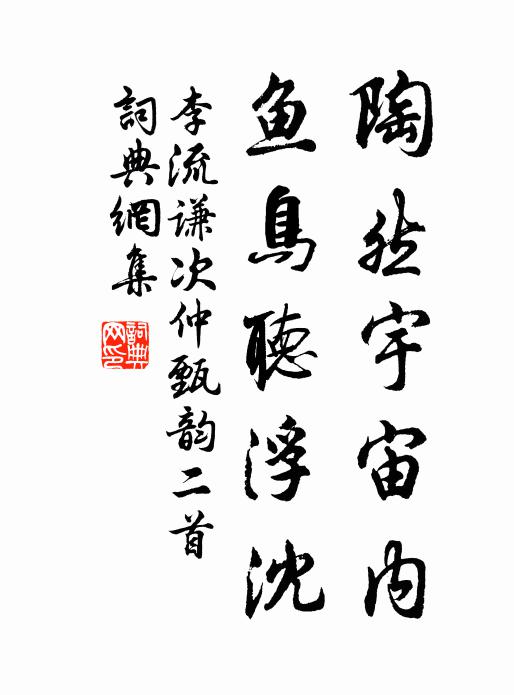 陶然宇宙内
鱼鳥聽浮沈
李流谦次仲甄韵二首
詞典網集
詞典网印